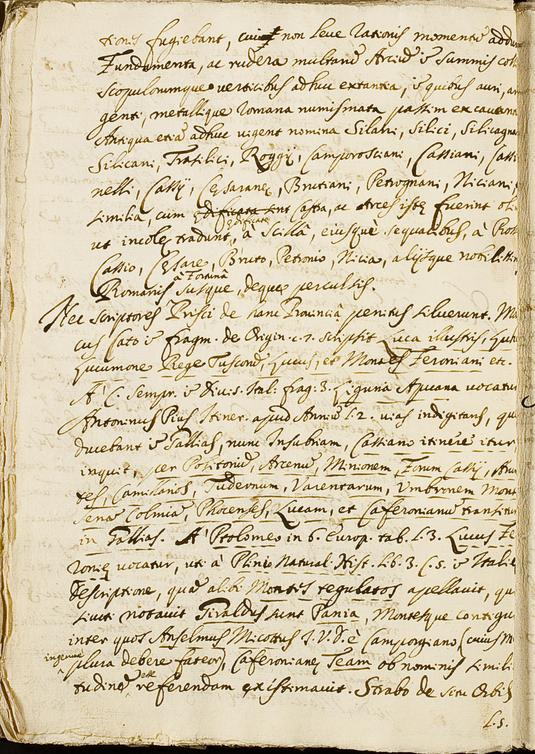 tionis fugiebant, cui non leve rationis momentū addunt
Fundamenta, ac rudera multarū Arciū ī summis coll
scopulorumque verticibus adhuc extantia, ī quibus auri, ar
genti, metallique romana numismata passim excavant
Antiqua etiā adhuc vigent nomina Silani, Silici, Silicagna
Silicani, Trasilici, Roggij, Camporosciani, Cassiani, Cassi
nelli, Cassij, Cesaranę, Brutiani, Petrognani, Niciani,
similia, cum ędificata sint Castra, ac Arces istę fuerint
ut incolę tradunt, à Scillā, eiusquè sequacibus, à
Cassio, Cęsare, Bruto, Petronio, Nicia, alijsque nobiliss
Romanis Fortunā susque, deque perculsis.
Nec scriptores Prisci de hanc Provinciā penitus siluerunt. Mar
cus Cato ī fragm. de Origin. c. 7. scripsit Luca illustris,
Lucumone Rege Tuscorū, Lucus, et Montes Feroniani etc.
A C. Sempr. ī divis. Ital. frag. 3. Liguria Apuana vocatur
Antoninus Pius Itiner. apud Anniū l. 2. vias indigitans, quę
ducebant ī Gallias, nunc Insubriam, Cassiano itinere itur
inquit, per Politoriū, Arcenū, Minionem, Forum Cassij,
tes, Camillarios, Tudernum, Varentarum, Umbronem Mont
Senā Colmiā, Phocenses, Lucam, et Caferonianū transitur
in Gallias. A Ptolomeo in 6. Europ. tab. l. 3. Lucus Fe
ronię vocatur, uti à Plinio Natural. Hist. Lib. 3. C. 5. ī Italię
descriptione, quā alibi Montes regulatos apellavit, qu
Liviū notavit Tiraldus sunt Pania, Montesque contigui
inter quos Anselmus Micottus J. V. D. è Camporgiano (cuius
ingenuè plura debere fateor) Caferonianę Team ob nominis simili
tudinē referendam esse existimavit. Strabo de situ Orbis
L. 5.